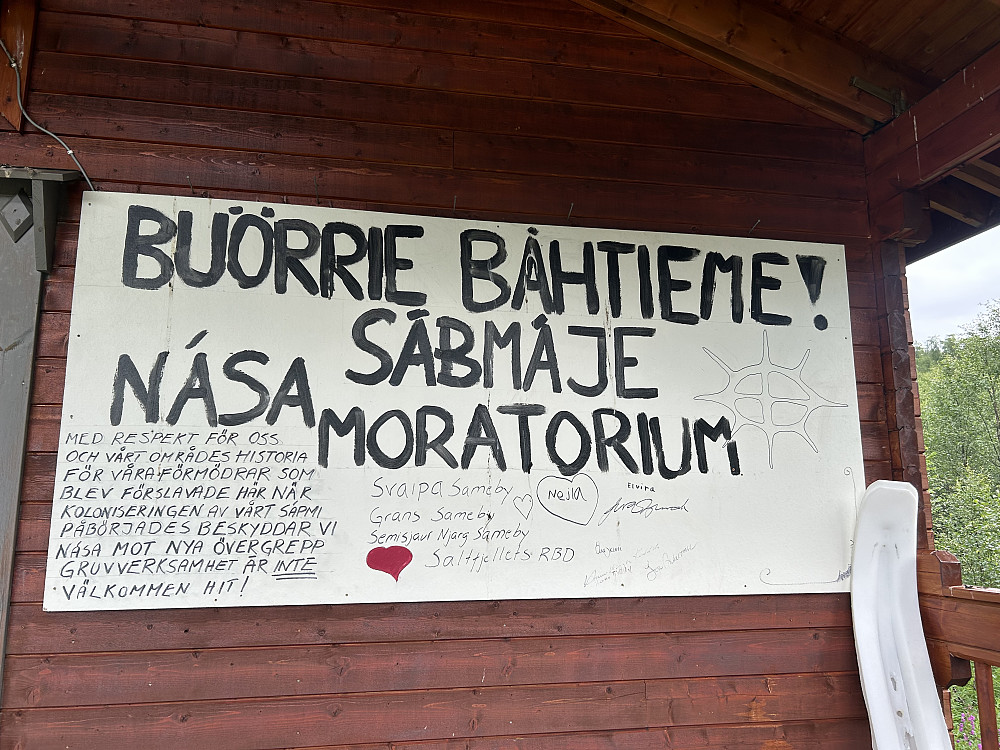 BUÖRRIE BÅHTIEME!
SÁBMÁJE
NÁSA MORATORIUM
MED RESPEKT FÖR OSS
OCH VÅRT OMRÅDES HISTORIA
FÖR VÅRA FÖRMÖDRAR SOM
BLEV FÖRSLAVADE HÄR NÄR
KOLONISERINGEN AV VÅRT SÁPMI
PÅBÖRJADES BESKYDDAR VI
NÁSA MOT NYA ÖVERGREPP
GRUVVERKSAMHET ÄR INTE
VÄLKOMMEN HIT!
Svaipa Sameby
Grans Sameby
Semisjaur Njarg Sameby
Saltfjellets RBD
Nejla
Elvira